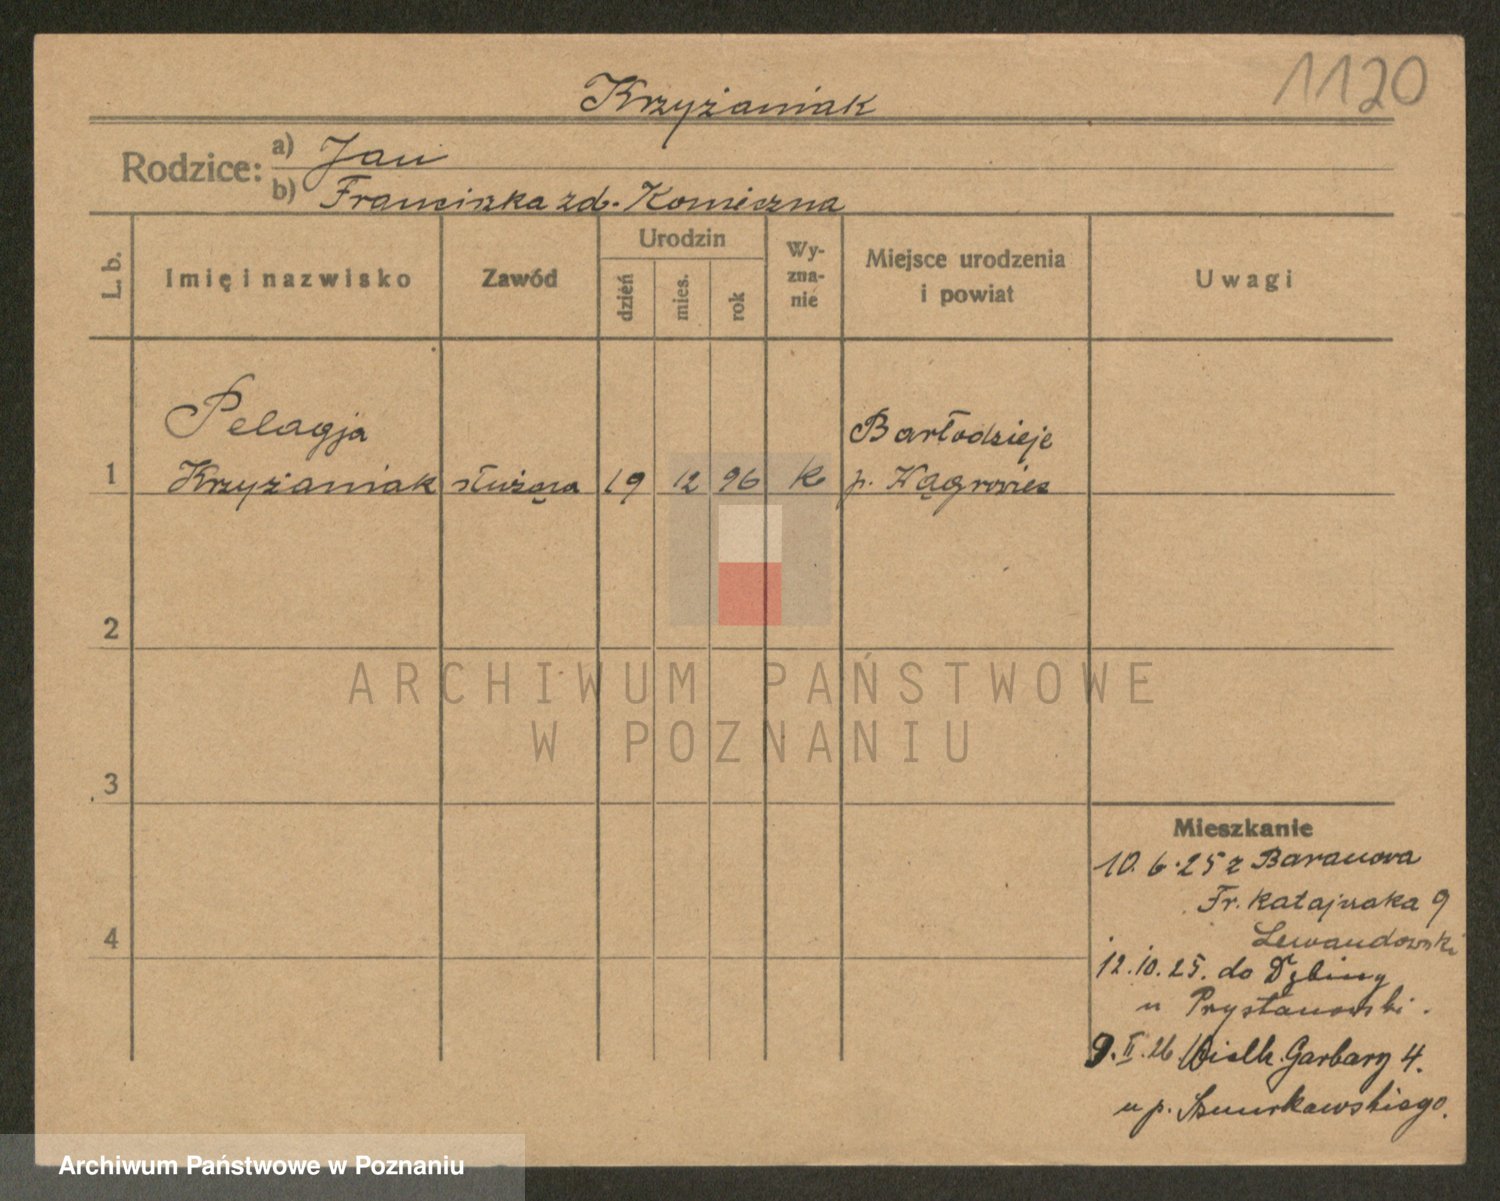 1120
Krzyżaniak
Rodzice:
a) Jan
b) Franciszka zd. Konieczna
L. b.
Imię i nazwisko
Zawód
Urodzin
dzień
mies.
rok
Wy-
zna-
nie
Miejsce urodzenia
i powiat
Uwagi
Pelagja
Bartodzieje
1 Krzyżaniak służąca 19 12 96 k p. Wągrowiec
2
3
4
ARCHIWUM PAŃSTWOWE
W POZNANIU
Mieszkanie
10.6.25 z Baranowa
Fr. Ratajczaka 9
Lewandowski
12.10.25. do Dębiny
u Prystanowski.
9.II.26 Wielk. Garbary 4.
u p. Sznurkowskiego.
Archiwum Państwowe w Poznaniu